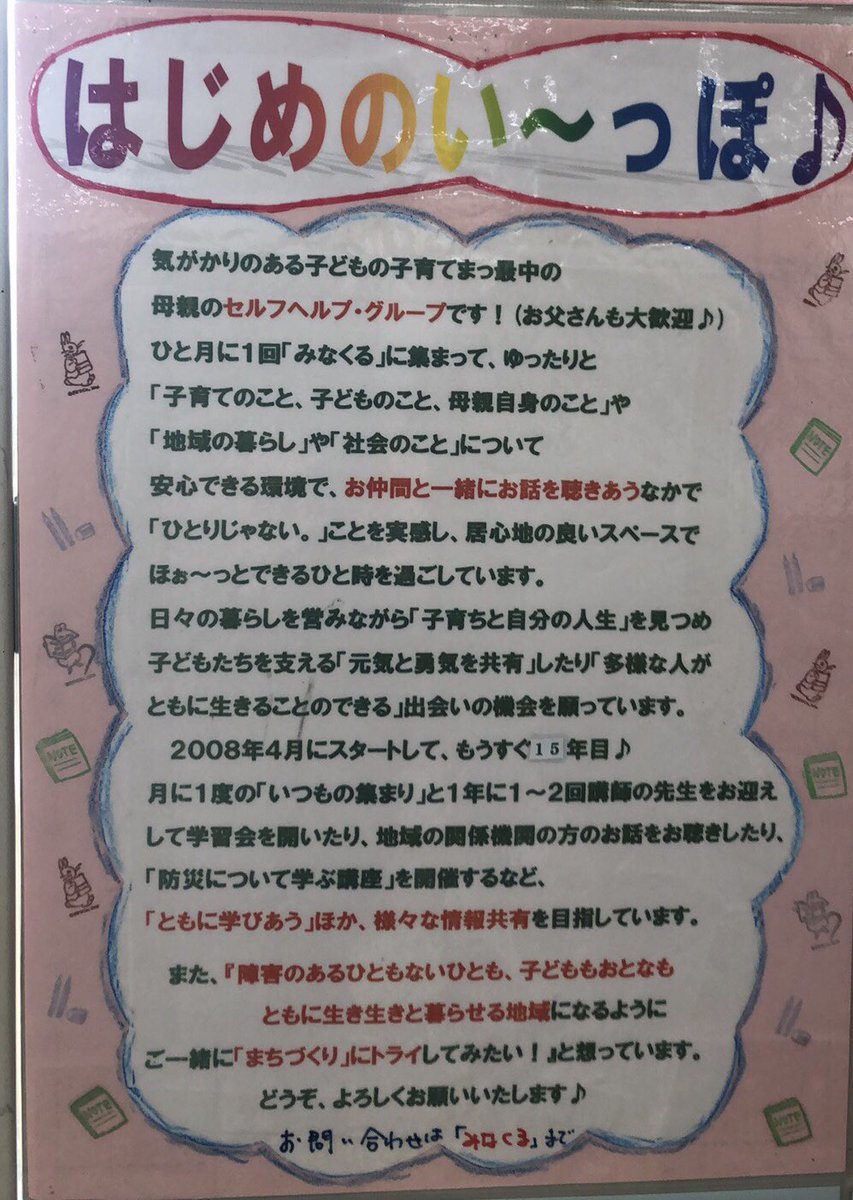 はじめのい～っぽ♪
気がかりのある子どもの子育てまっ最中の
母親のセルフヘルプ・グループです！（お父さんも大歓迎♪）
ひと月に１回「みなくる」に集まって、ゆったりと
「子育てのこと、子どものこと、母親自身のこと」や
「地域の暮らし」や「社会のこと」について
安心できる環境で、お仲間と一緒にお話を聴きあうなかで
「ひとりじゃない。」ことを実感し、居心地の良いスペースで
ほぉ～っとできるひと時を過ごしています。
日々の暮らしを営みながら「子育ちと自分の人生」を見つめ
子どもたちを支える「元気と勇気を共有」したり「多様な人が
ともに生きることのできる」出会いの機会を願っています。
２００８年４月にスタートして、もうすぐ１５年目♪
月に１度の「いつもの集まり」と１年に１～２回講師の先生をお迎え
して学習会を開いたり、地域の関係機関の方のお話をお聴きしたり、
「防災について学ぶ講座」を開催するなど、
「ともに学びあう」ほか、様々な情報共有を目指しています。
また、『障害のあるひともないひとも、子どももおとなも
ともに生き生きと暮らせる地域になるように
ご一緒に「まちづくり」にトライしてみたい！』と想っています。
どうぞ、よろしくお願いいたします♪
お問い合わせは「みなくる」まで
NOTE
NOTE
NOTE
NOTE
NOTE